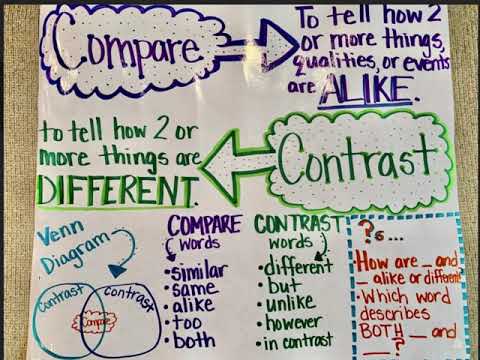 Compare
To tell how 2
or more things,
qualities, or events
are ALIKE.
to tell how 2 or
more things are
DIFFERENT.
Contrast
Venn
Diagram
Contrast
Compare
Contrast
COMPARE
words
• similar
• same
• alike
• too
• both
CONTRAST
words
• different
• but
• unlike
• however
• in contrast
?s...
• How are _ and
_ alike or different
• Which word
describes
BOTH _ and
_ ?